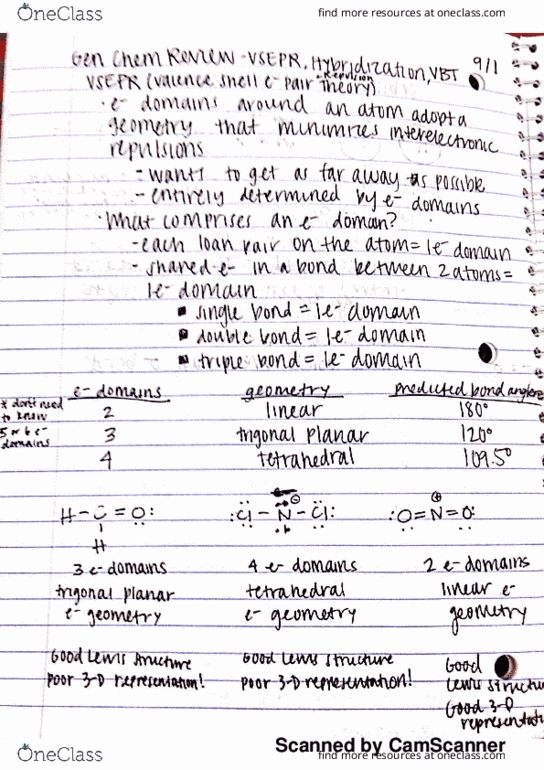 OneClass
find more resources at oneclass.com
Gen Chem Review - VSEPR, Hybridization, VBT 9/1
Repulsion
VSEPR (valence shell e- pair Theory)
· e- domains around an atom adopt a
geometry that minimizes interelectronic
repulsions
- wants to get as far away as possible
- entirely determined by e- domains
· What comprises an e- domain?
- each loan pair on the atom = 1e- domain
- shared e- in a bond between 2 atoms =
1e- domain
▪ single bond = 1e- domain
▪ double bond = 1e- domain
▪ triple bond = 1e- domain
e- domains geometry predicted bond angles
2 linear 180°
3 trigonal planar 120°
4 tetrahedral 109.5°
* don't need
to know
5 or 6 e-
domains
H - C = O: :Cl - N - Cl: :O = N = O:
H
3 e- domains 4 e- domains 2 e- domains
trigonal planar tetrahedral linear e-
e- geometry e- geometry geometry
Good Lewis structure Good Lewis structure Good
Poor 3-D representation! Poor 3-D representation! Lewis structu
Good 3-D
representat
Scanned by CamScanner
OneClass
find more resources at oneclass.com